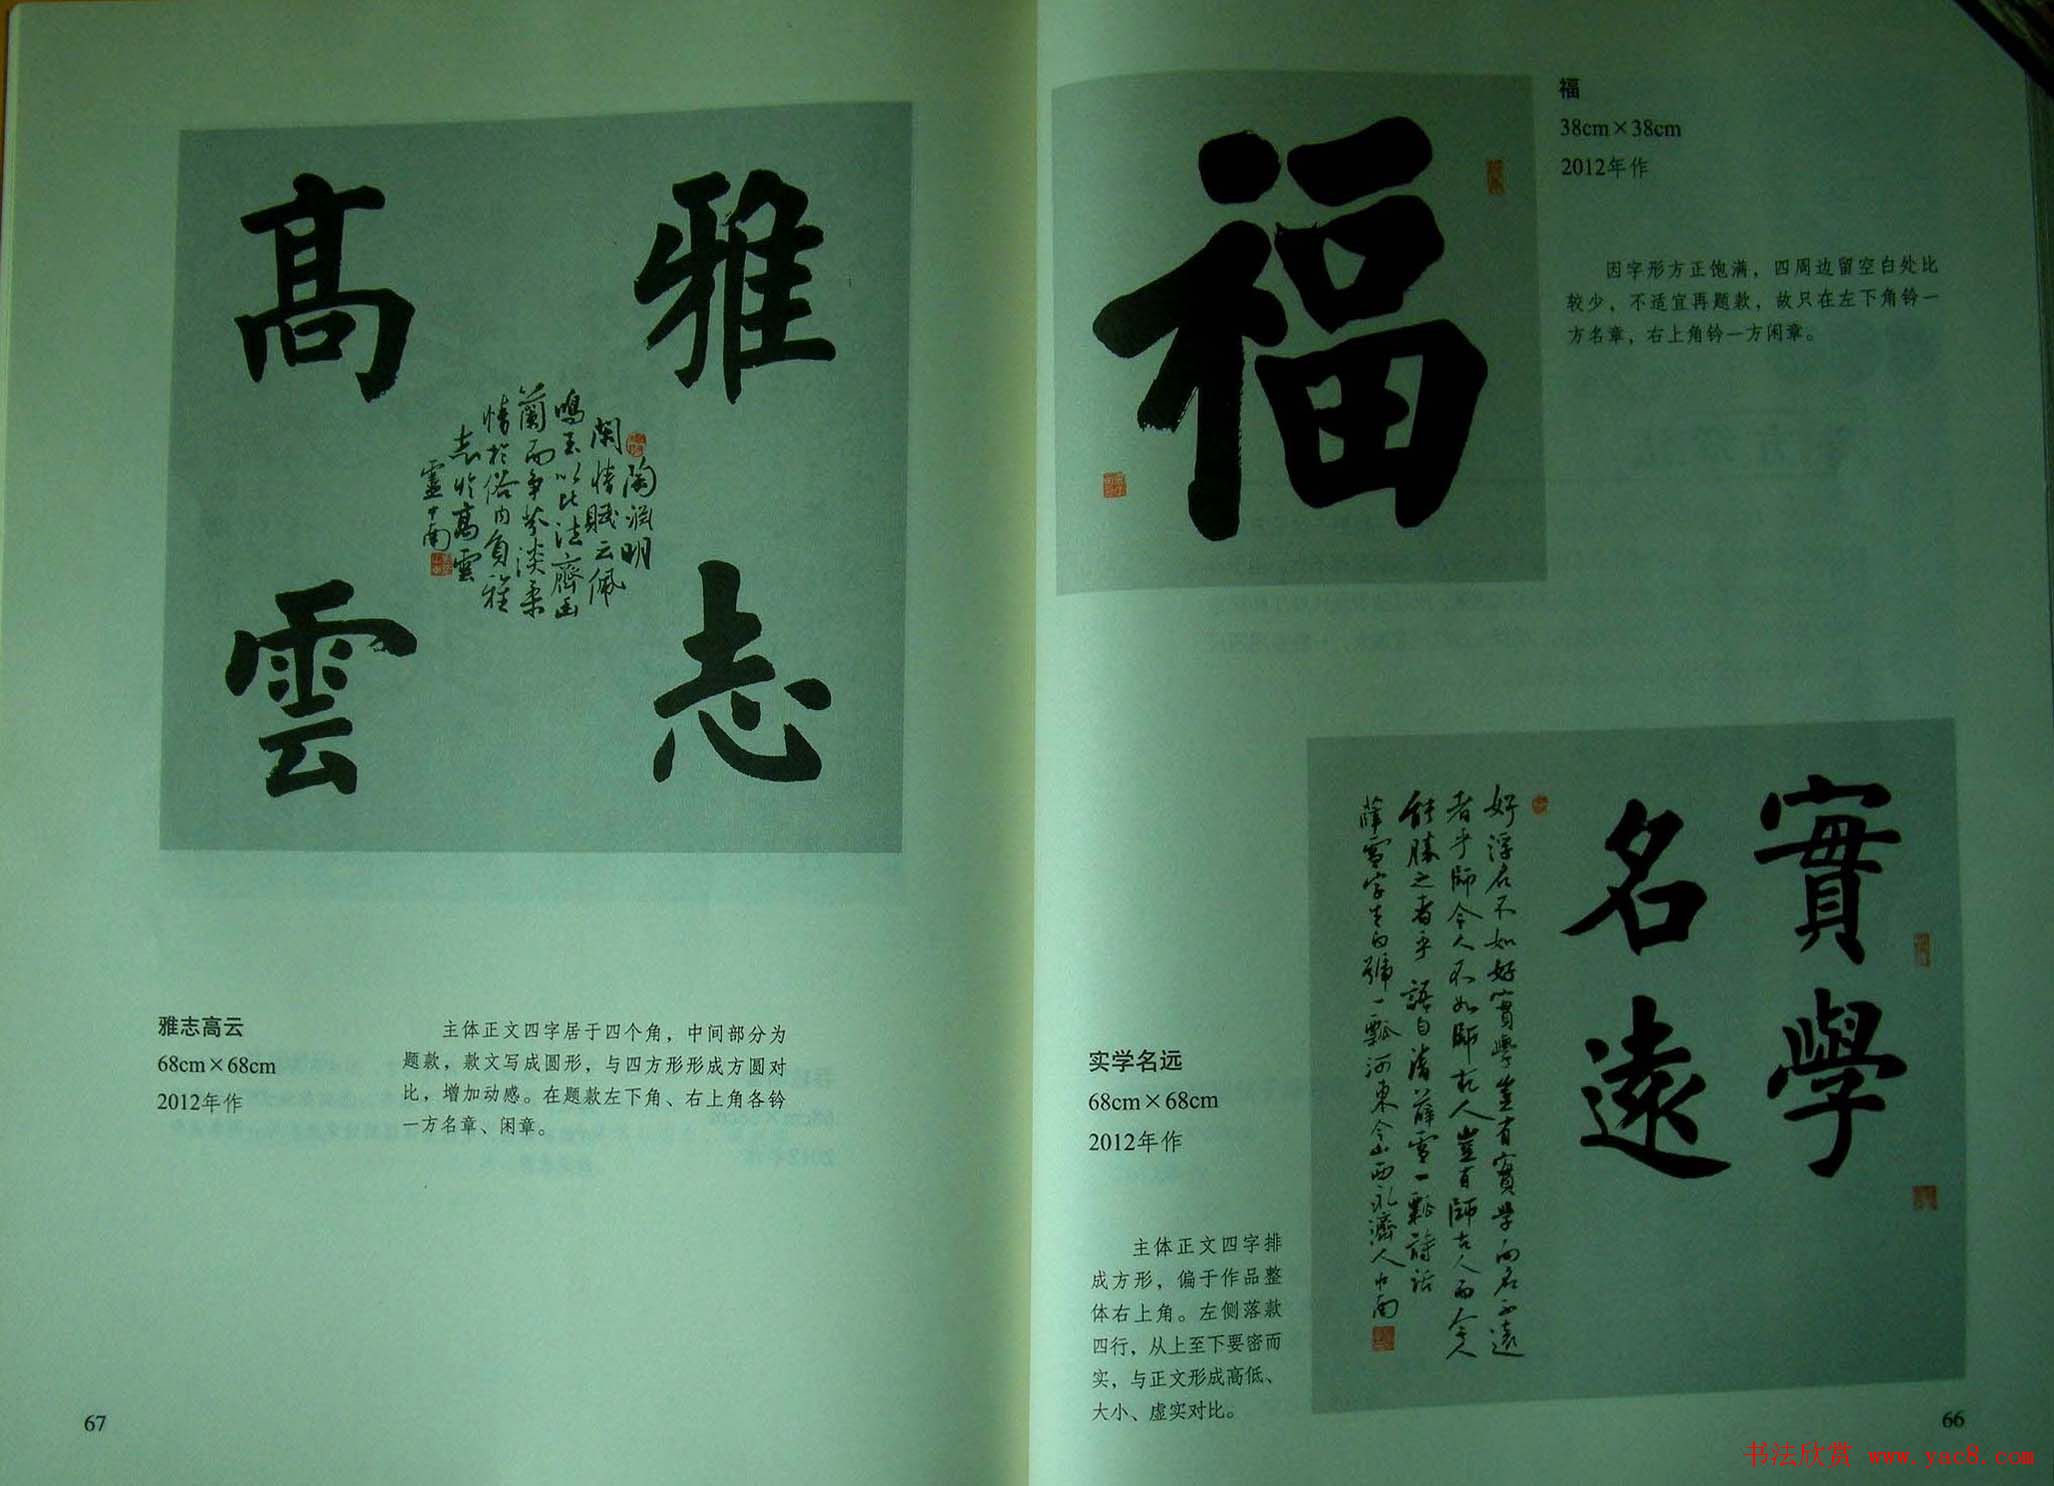 福
38cm×38cm
2012年作
因字形方正饱满，四周边留空白处比
较少，不适宜再题款，故只在左下角钤一
方名章，右上角钤一方闲章。
福
實學
名遠
好浮名不如好實學豈有實學而名不遠
者乎師今人不如師古人豈有師古人而今人
能勝之者乎 語自清薛雪一瓢詩話
薛雪字生白號一瓢河東今山西永濟人 中南
实学名远
68cm×68cm
2012年作
主体正文四字排
成方形，偏于作品整
体右上角。左侧落款
四行，从上至下要密而
实，与正文形成高低、
大小、虚实对比。
66
雅志
高雲
陶淵明
閑情賦云佩
鳴玉以比潔齊幽
蘭而争芬淡柔
情於俗内負雅
志於高雲
靈中南
雅志高云
68cm×68cm
2012年作
主体正文四字居于四个角，中间部分为
题款，款文写成圆形，与四方形形成方圆对
比，增加动感。在题款左下角、右上角各钤
一方名章、闲章。
67
书法欣赏 www.yac8.com